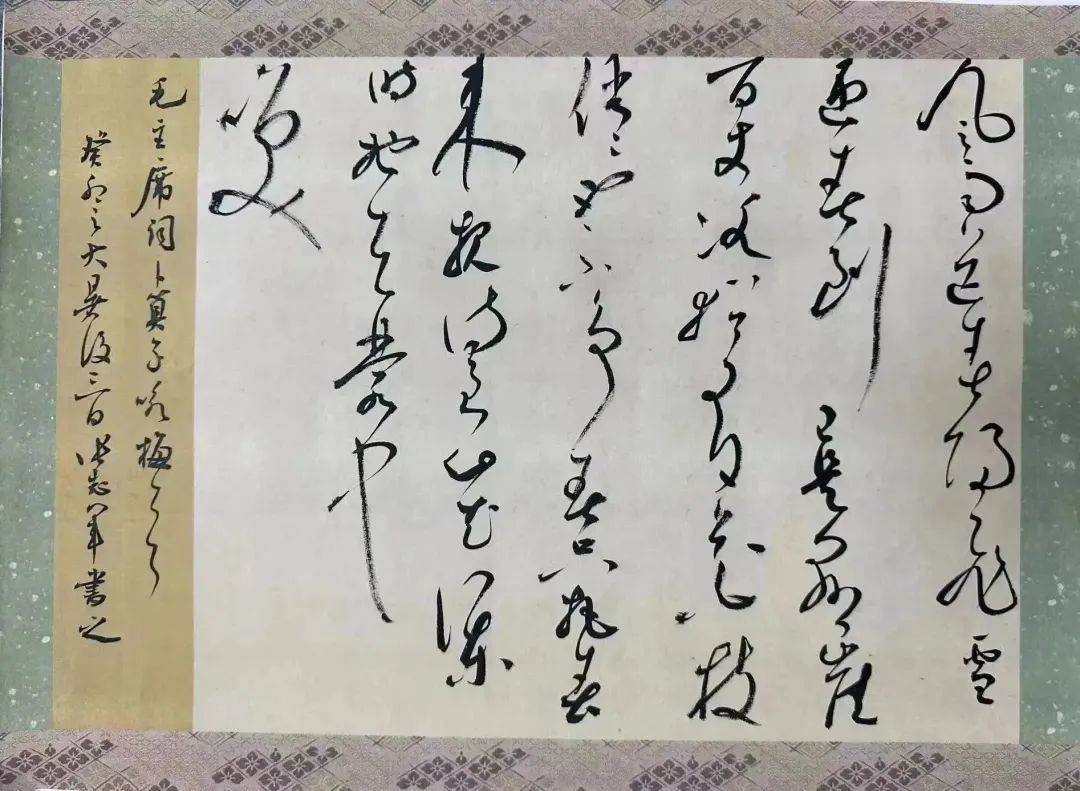 风雨送春归飞雪
迎春到已是悬崖
百丈冰犹有花枝
俏俏也不争春只把春
来报待到山花烂
时她在丛中
咲
毛主席词卜算子咏梅
癸卯之大暑后三日张志军书之